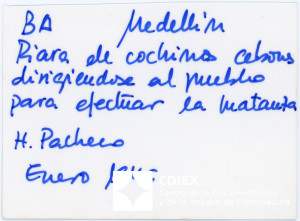 BA Medellín
Piara de cochinos cebones
dirigiendose al pueblo
para efectuar la matanza
H. Pacheco
Enero
CDIEX